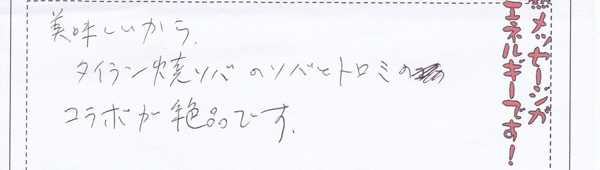 美味しいから、
タイラン焼ソバのソバとトロミの
コラボが絶品です。
メッセージが
エネルギーです！